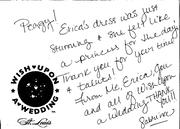 Peggy!
Erica's dress was just
stunning & she felt like
a princess for the day!
Thank you for your time
& talent!
From me, Erica,
and all of Wish Upon
a Wedding THANK
YOU!
WISH UPON
A WEDDING
St. Louis